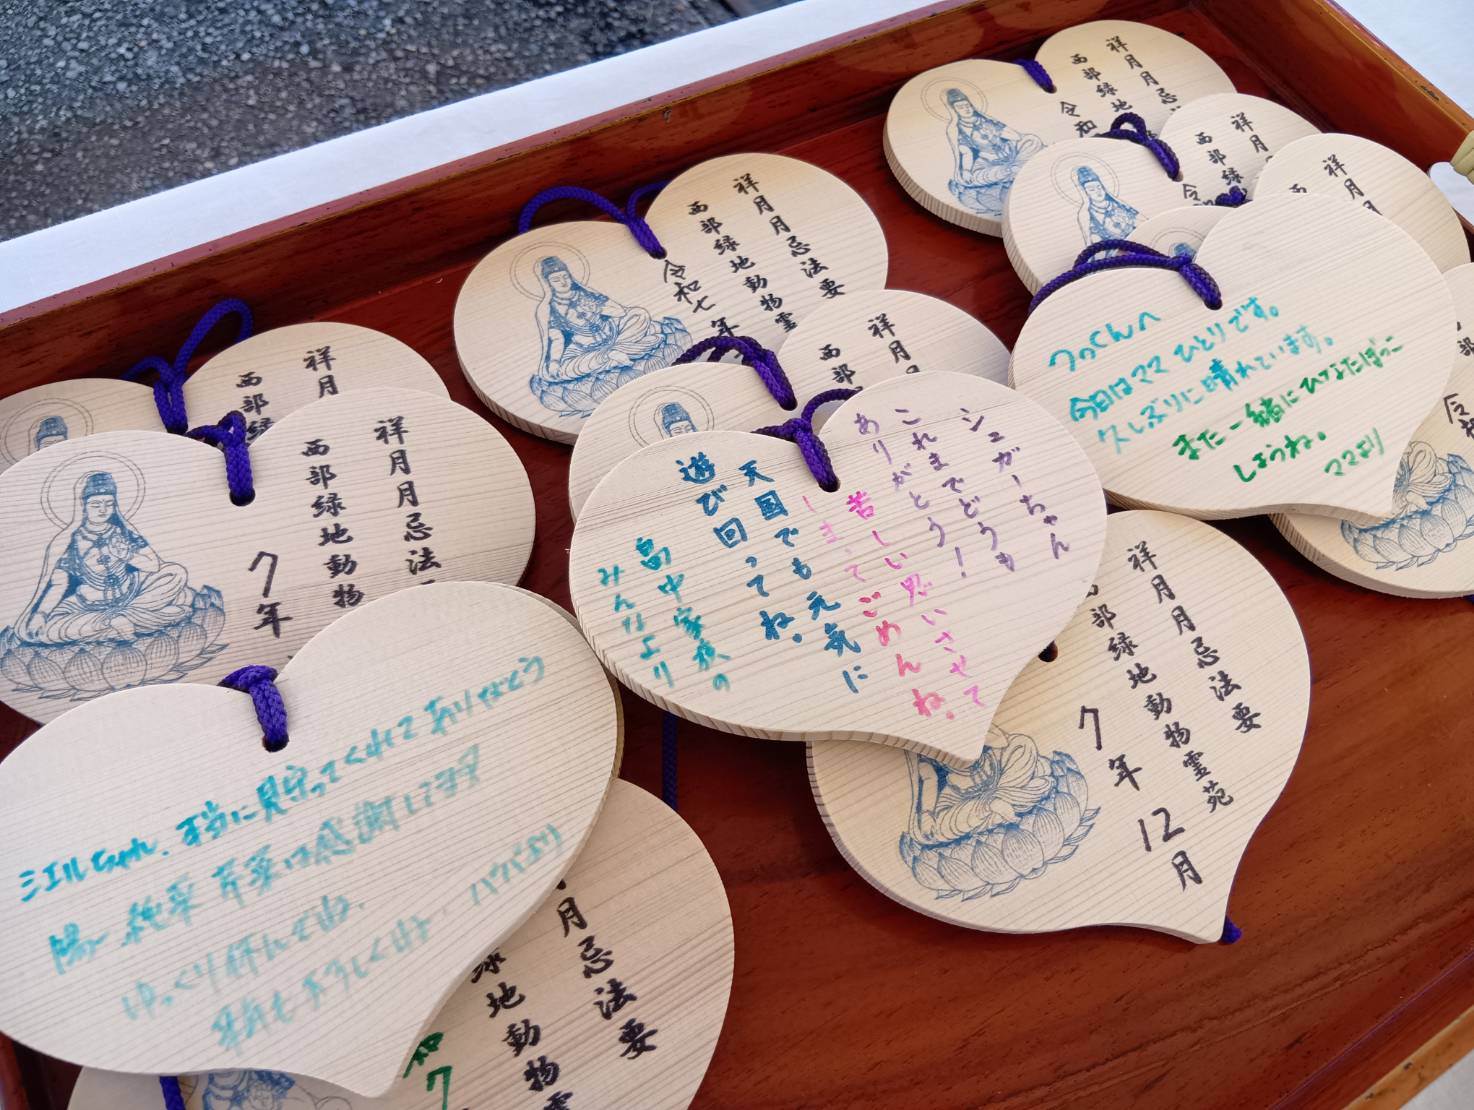 祥月月忌法要
西部緑地動物霊
令和七年
祥月月忌
西部緑地
令和
祥月
西部緑
令
祥月
祥月
西部
祥月
西部緑
祥月月忌法
西部緑地動物
7年
つっくんへ
今日はママひとりです。
久しぶりに晴れています。
また一緒にひなたぼっこ
しようね。
ママより
シュガーちゃん
これまでどうも
ありがとう!
苦しい思いさせて
しまってごめんね。
天国でも元気に
遊び回ってね。
畠中家族の
みんなより
祥月月忌法要
部緑地動物霊苑
7年12月
シエルちゃん、本当に見守ってくれてありがとう
感謝してるヨ
ゆっくり休んでね。
パパより
月忌法要
緑地動物霊
和7